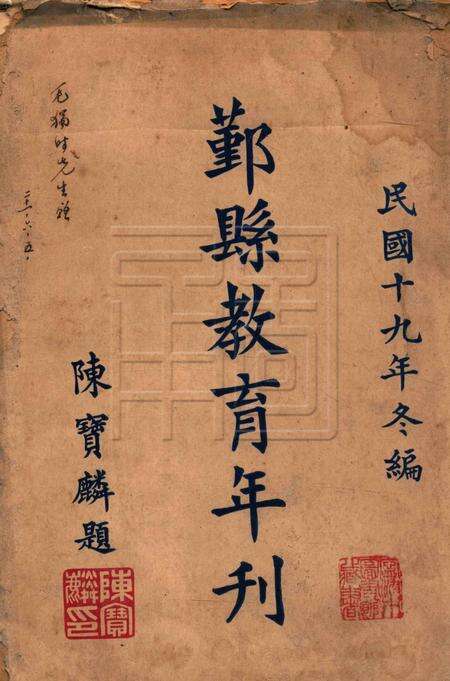 民國十九年冬編
鄞縣教育年刊
陳寶麟題
陳寶麟印
毛獨時先生贈
二十一·六·五·